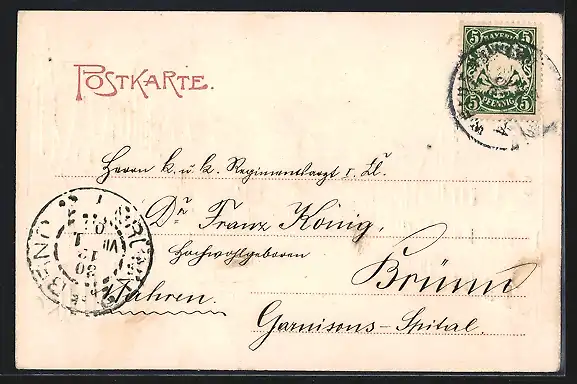 POSTKARTE.
5 BAYERN 5
5 PFENNIG 5
Herrn k. u. k. Regimentsarzt I. Kl.
Dr Franz König,
Hochwohlgeboren
Brünn
Mähren.
Garnisons-Spital.
BRÜNN
BRNO